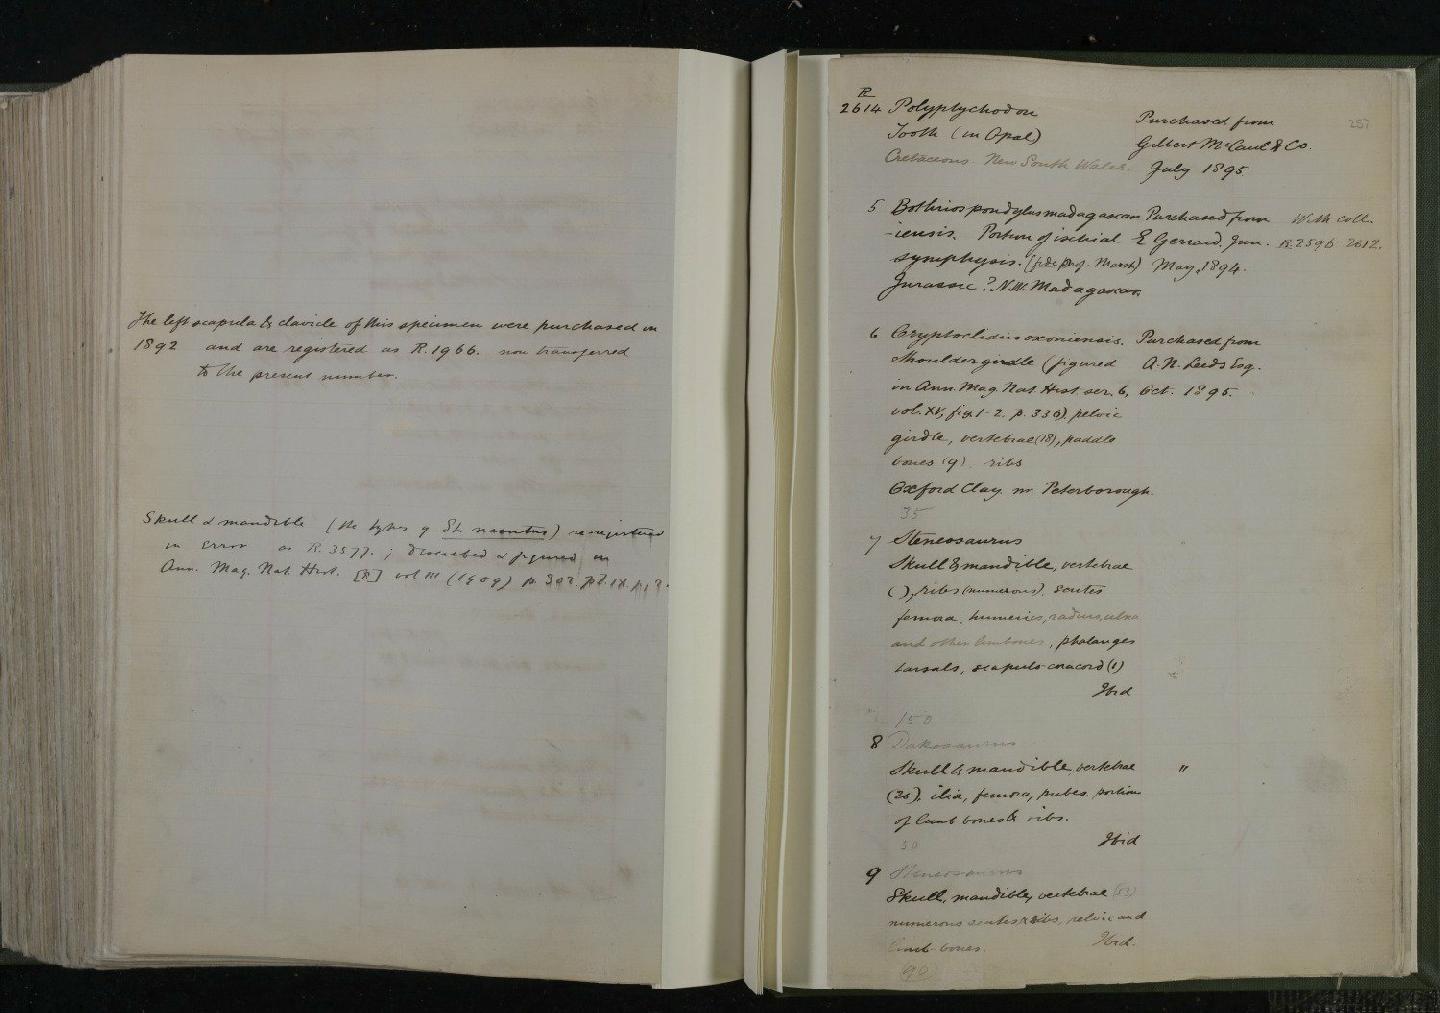 The left scapula & clavicle of this specimen were purchased in
1892 and are registered as R.1966. now transferred
to the present number.
Skull & mandible (the types of St. ) reregistered
in error as R.3577. ; described & figured in
Ann. Mag. Nat. Hist. [8] vol III (1909) p. 302 pl. IX.
257
R
2614 Polyptychodon
Tooth (in Opal)
Cretaceous. New South Wales.
Purchased from
Gilbert McCaul & Co.
July 1895.
5 Bothriospondylus madagascar
-iensis. Portion of ischial
symphysis. (fide Prof. Marsh)
Jurassic? N.W. Madagascar.
Purchased from
E Gerrard, Jun.
May, 1894.
With coll.
R.2596 2612.
6 Cryptoclidus oxoniensis.
Shoulder girdle (figured
in Ann. Mag. Nat Hist. ser. 6,
vol. XV, fig. 1-2. p. 336), pelvic
girdle, vertebrae (18), paddle
bones (9). ribs
Oxford Clay. nr Peterborough.
35
Purchased from
A. N. Leeds Esq.
Oct. 1895.
7 Steneosaurus
Skull & mandible, vertebrae
( ), ribs (numerous). scutes
femora. humerus, radius, ulna
and other limb bones, phalanges
tarsals, scapulo-coracoid (1)
Ibid
150
8 Dakosaurus
Skull & mandible, vertebrae "
(26), ilia, femora, pubes. portion
of limb bones & ribs.
Ibid
30
9 Steneosaurus
Skull, mandible, vertebrae
numerous scutes & ribs, pelvic and
limb-bones. Ibid.
90